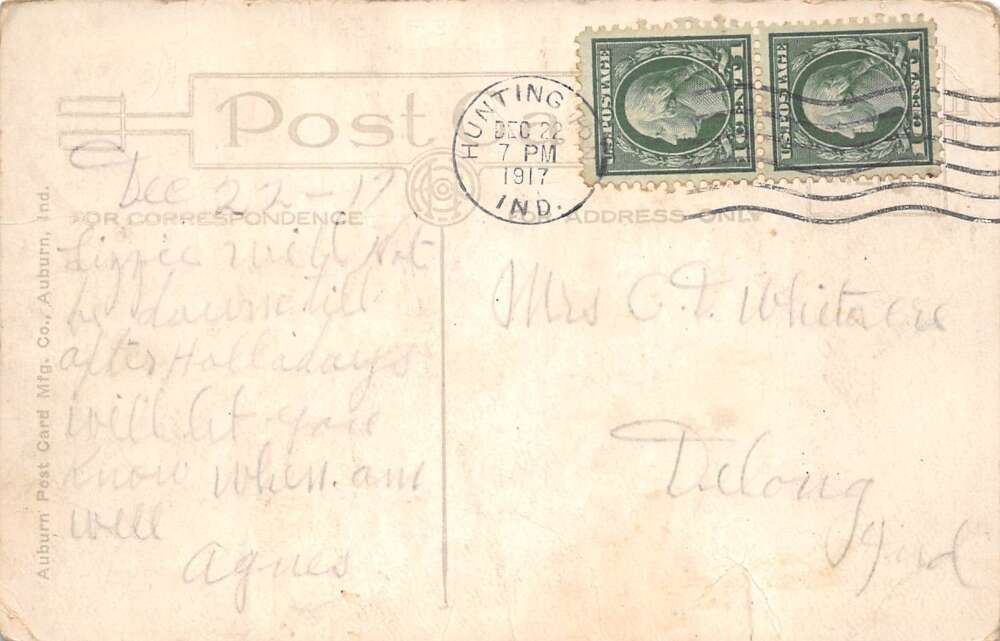 Post Ca
U.S. POSTAGE
1 CENT 1
U.S. POSTAGE
1 CENT 1
HUNTINGTO
DEC 22
7 PM
1917
IND.
Dec 22-17
FOR CORRESPONDENCE
FOR ADDRESS ONLY
Lizzie will Not
be down till
after Holladays
will let you
know when. am
well
Agnes
Mrs C. D. Whitmere
Delong
Ind
Auburn Post Card Mfg. Co., Auburn, Ind.